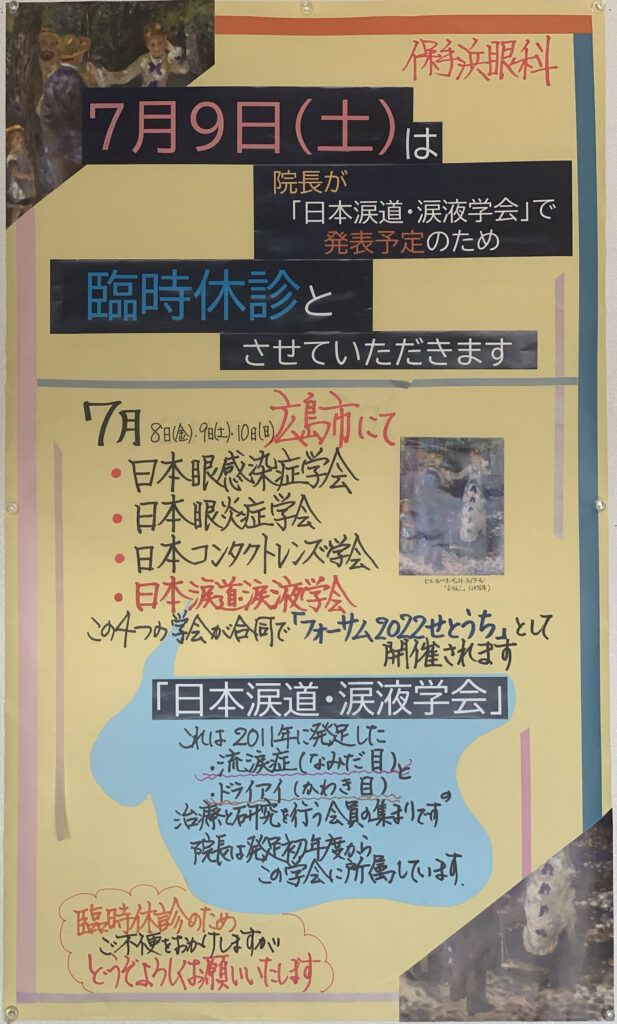 保手浜眼科
7月9日(土)は
院長が
「日本涙道・涙液学会」で
発表予定のため
臨時休診と
させていただきます
7月 8日(金)・9日(土)・10日(日) 広島市にて
・日本眼感染症学会
・日本眼炎症学会
・日本コンタクトレンズ学会
・日本涙道・涙液学会
この4つの学会が合同で「フォーサム2022せとうち」として
開催されます
ピエール=オーギュスト・ルノワール
「ぶらんこ」(1876年)
「日本涙道・涙液学会」
これは2011年に発足した
・流涙症(なみだ目)と
・ドライアイ(かわき目)の
治療と研究を行う会員の集まりです。
院長は発足初年度から
この学会に所属しています.
臨時休診のため
ご不便をおかけしますが
どうぞよろしくお願いいたします